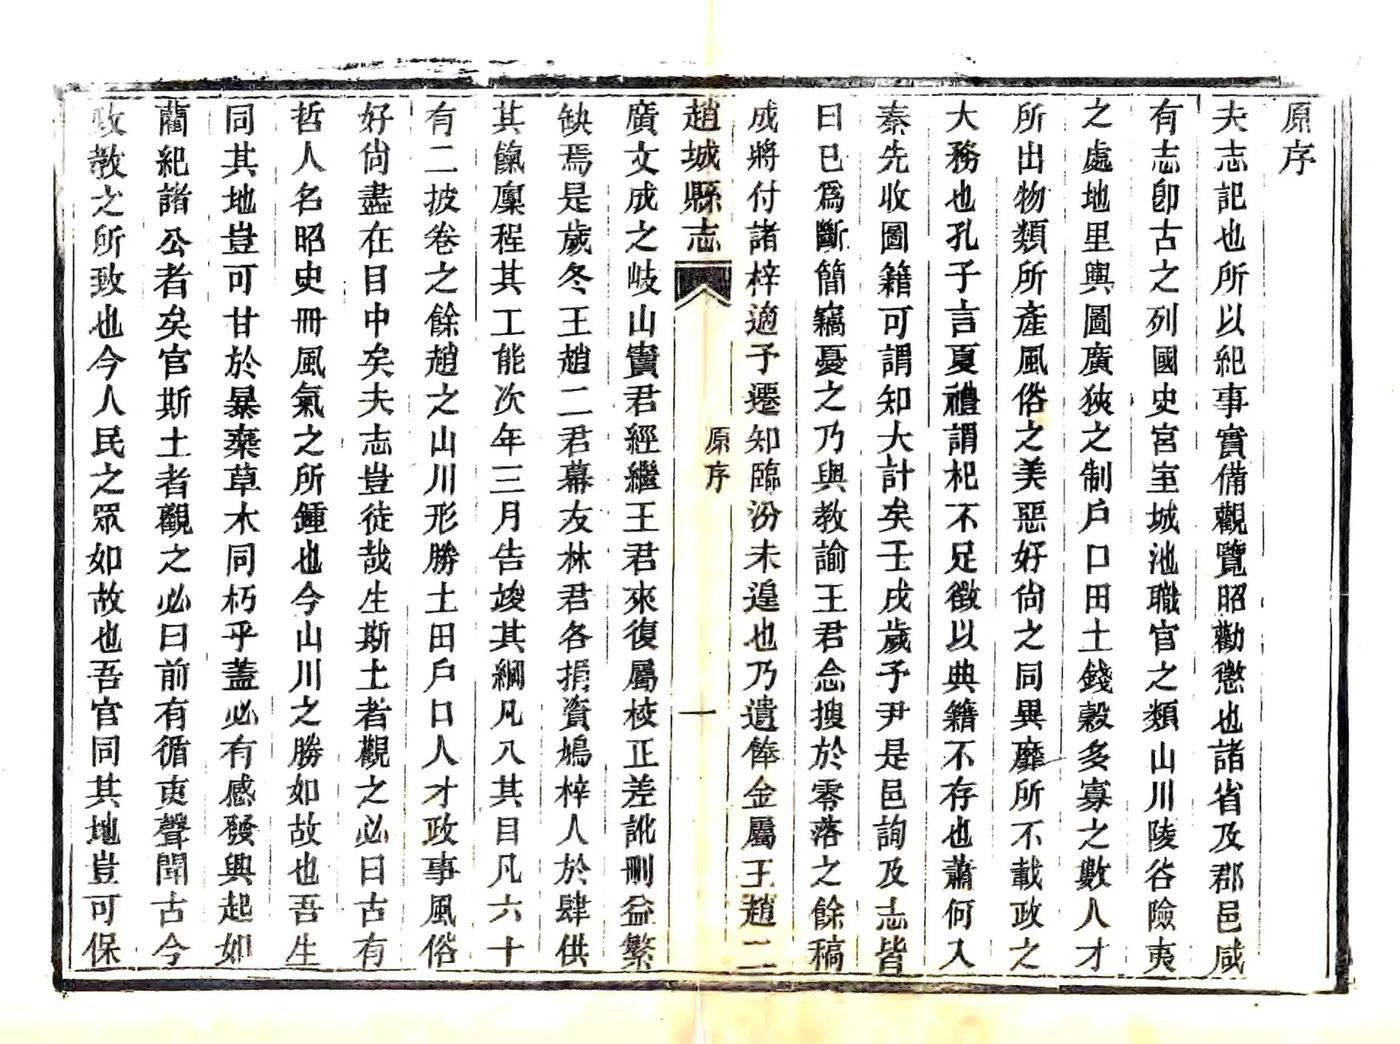 原序
夫志記也所以紀事實備觀覽昭勸懲也諸省及郡邑咸
有志卽古之列國史宮室城池職官之類山川陵谷險夷
之處地里輿圖廣狹之制戶口田土錢穀多寡之數人才
所出物類所產風俗之美惡好尙之同異靡所不載政之
大務也孔子言夏禮謂杞不足徵以典籍不存也蕭何入
秦先收圖籍可謂知大計矣壬戌歲予尹是邑詢及志皆
曰已爲斷簡竊憂之乃與教諭王君念搜於零落之餘稿
成將付諸梓適予遷知臨汾未遑也乃遺俸金屬王趙二
趙城縣志
原序
一
廣文成之岐山竇君經繼王君來復屬校正差訛刪益繁
缺焉是歲冬王趙二君幕友林君各捐資鳩梓人於肆供
其餼廩程其工能次年三月告竣其綱凡八其目凡六十
有二披卷之餘趙之山川形勝土田戶口人才政事風俗
好尙盡在目中矣夫志豈徒哉生斯土者觀之必曰古有
哲人名昭史冊風氣之所鍾也今山川之勝如故也吾生
同其地豈可甘於暴棄草木同朽乎蓋必有感發興起如
藺紀諸公者矣官斯土者觀之必曰前有循吏聲聞古今
政教之所致也今人民之眾如故也吾官同其地豈可保